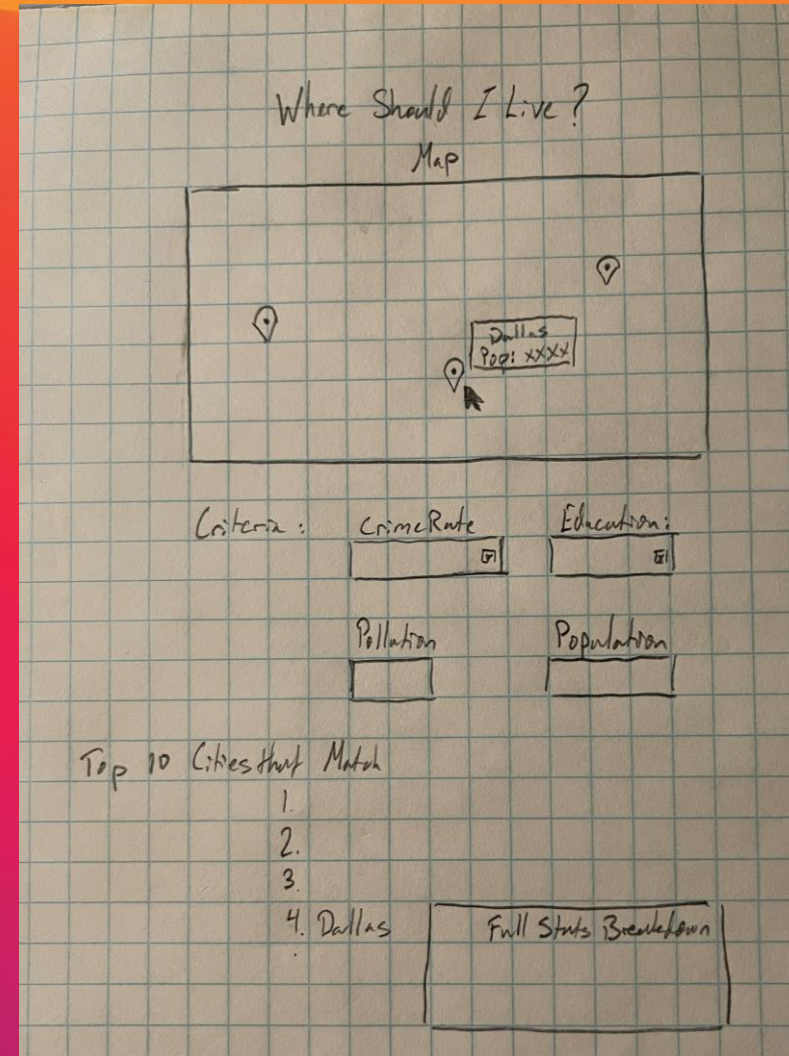 Where Should I Live?
Map
Dallas
Pop: xxxx
Criteria: Crime Rate Education:
Pollution Population
Top 10 Cities that Match
1.
2.
3.
4. Dallas Full Stats Breakdown